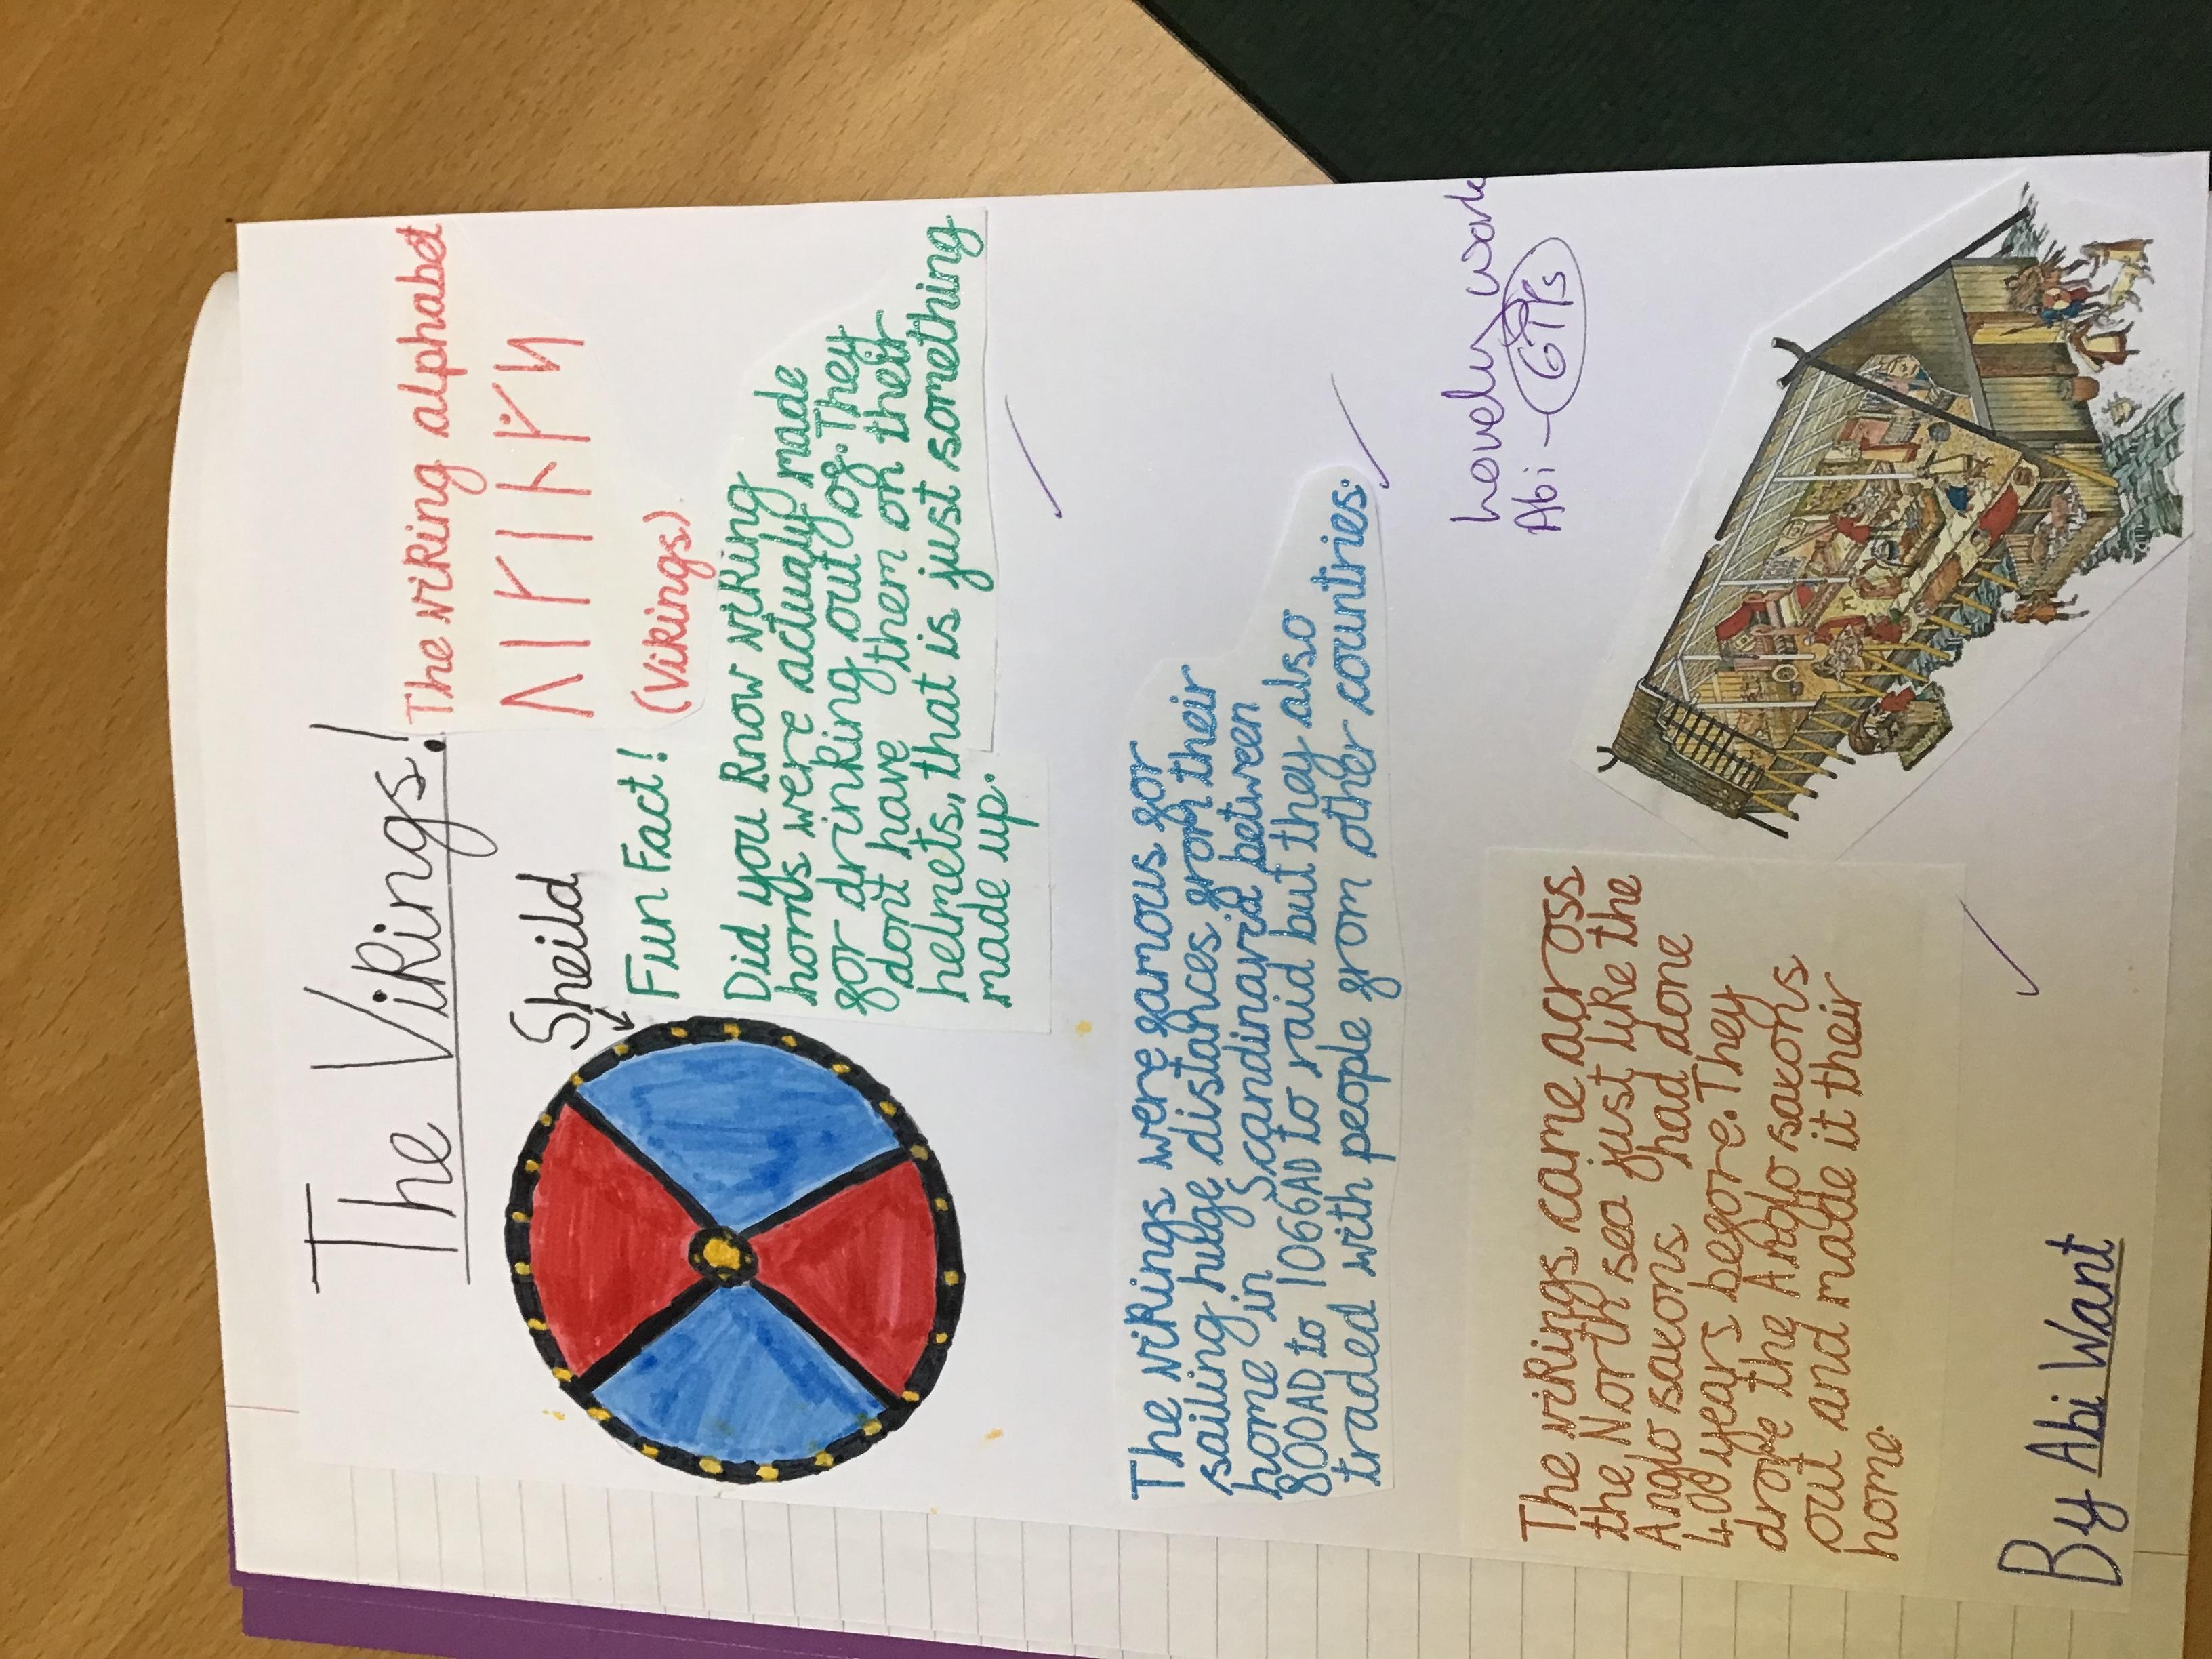 The Vikings!
The viking alphabet
ᚢᛁᚴᛁᚾᚵᛋ
(Vikings)
Sheild
Fun Fact!
Did you know viking
horns were actually made
for drinking out of. They
don't have them on their
helmets, that is just something
made up.
The vikings were famous for
sailing huge distances from their
home in Scandinavia between
800AD to 1066AD to raid but they also
traded with people from other countries.
lovely work
Abi - 6TPs
The vikings came across
the North sea just like the
Anglo saxons had done
400 years before. They
drove the Anglo saxons
out and made it their
home.
By Abi Want